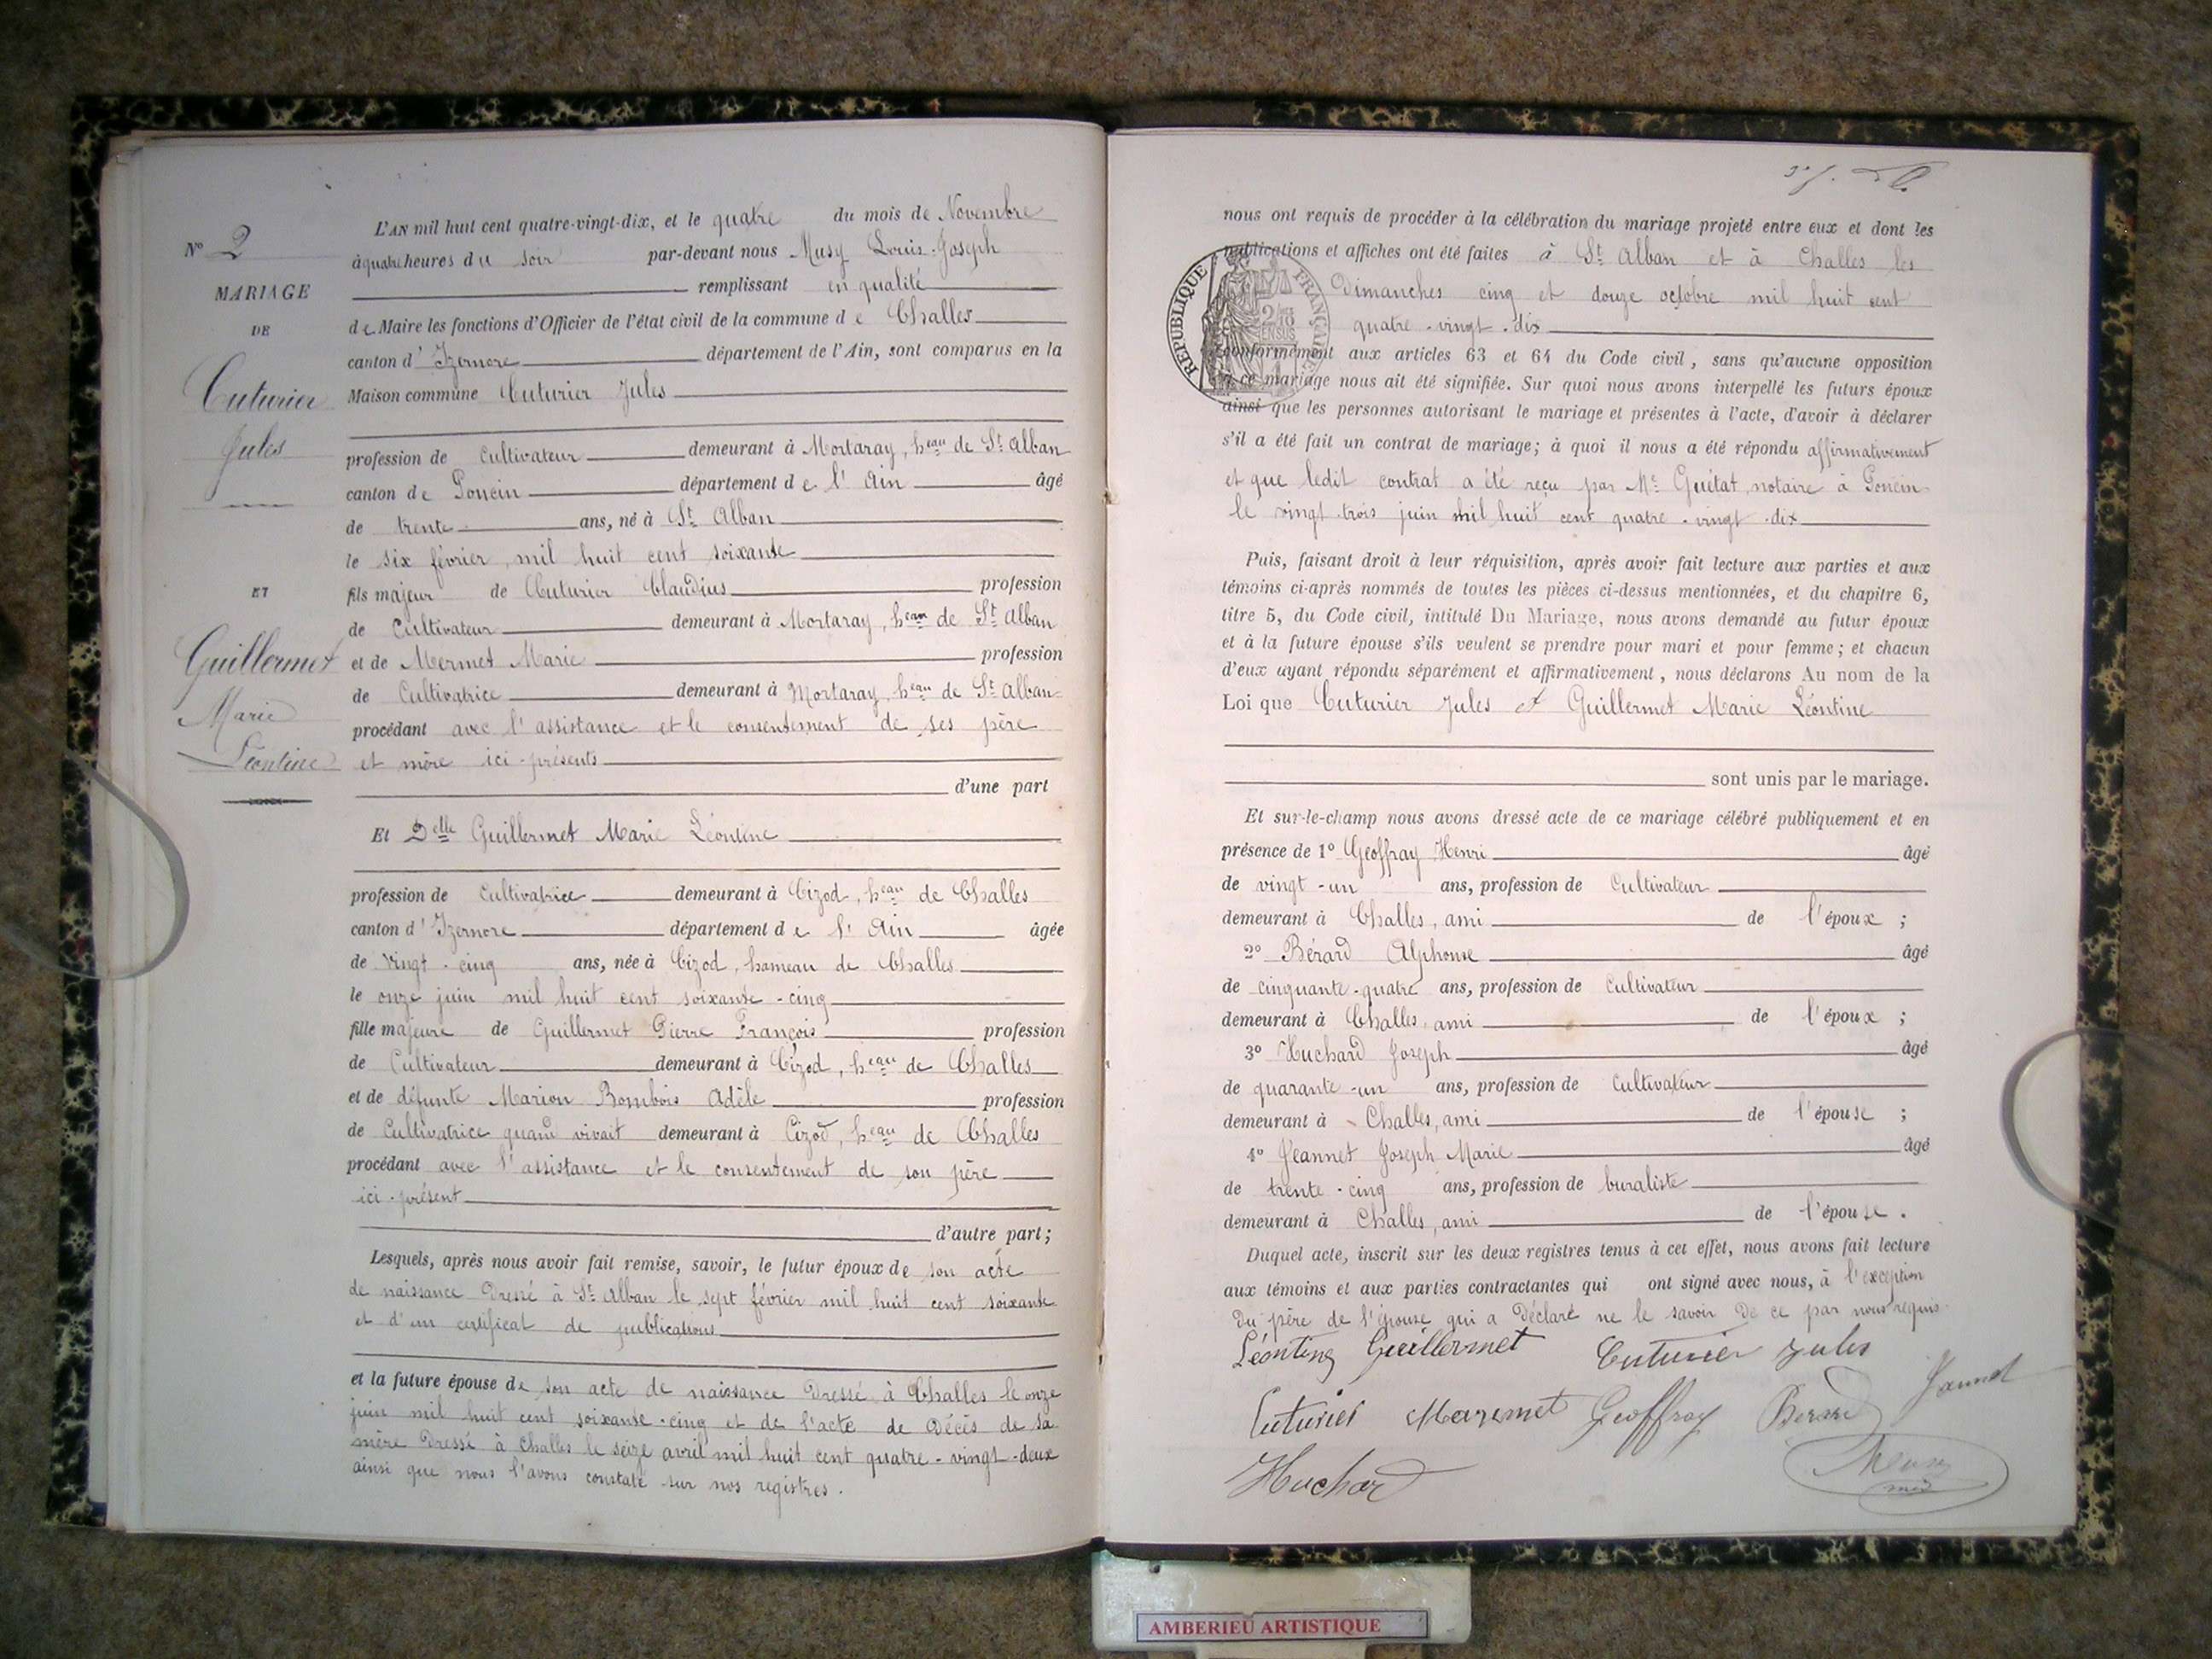 N° 2
MARIAGE
DE
Cuturier
Jules
ET
Guillermet
Marie
Léontine
L'AN mil huit cent quatre-vingt-dix, et le quatre du mois de Novembre
à quatre heures du soir par-devant nous Musy Louis-Joseph
remplissant en qualité
de Maire les fonctions d'Officier de l'état civil de la commune de Challes
canton d'Izernore département de l'Ain, sont comparus en la
Maison commune Cuturier Jules
profession de Cultivateur demeurant à Mortaray, heau de St Alban
canton de Poncin département de l'Ain âgé
de trente ans, né à St Alban
le six février mil huit cent soixante
fils majeur de Cuturier Claudius profession
de Cultivateur demeurant à Mortaray, heau de St Alban
et de Mermet Marie profession
de Cultivatrice demeurant à Mortaray, heau de St Alban
procédant avec l'assistance et le consentement de ses père
et mère ici-présents
d'une part
Et Delle Guillermet Marie Léontine
profession de Cultivatrice demeurant à Cizod, heau de Challes
canton d'Izernore département de l'Ain âgée
de vingt-cinq ans, née à Cizod, hameau de Challes
le onze juin mil huit cent soixante-cinq
fille majeure de Guillermet Pierre François profession
de Cultivateur demeurant à Cizod, heau de Challes
et de défunte Marion Bombois Adèle profession
de Cultivatrice quand vivait demeurant à Cizod, heau de Challes
procédant avec l'assistance et le consentement de son père
ici-présent
d'autre part;
Lesquels, après nous avoir fait remise, savoir, le futur époux de son acte
de naissance dressé à St Alban le sept février mil huit cent soixante
et d'un certificat de publications
et la future épouse de son acte de naissance dressé à Challes le onze
juin mil huit cent soixante-cinq et de l'acte de décès de sa
mère dressé à Challes le seize avril mil huit cent quatre-vingt-deux
ainsi que nous l'avons constaté sur nos registres.
nous ont requis de procéder à la célébration du mariage projeté entre eux et dont les
publications et affiches ont été faites à St Alban et à Challes les
Dimanches cinq et douze octobre mil huit cent
quatre-vingt-dix
REPUBLIQUE FRANÇAISE
conformément aux articles 63 et 64 du Code civil, sans qu'aucune opposition
à ce mariage nous ait été signifiée. Sur quoi nous avons interpellé les futurs époux
ainsi que les personnes autorisant le mariage et présentes à l'acte, d'avoir à déclarer
s'il a été fait un contrat de mariage; à quoi il nous a été répondu affirmativement
et que ledit contrat a été reçu par Me Guétat, notaire à Poncin
le vingt-trois juin mil huit cent quatre-vingt-dix
Puis, faisant droit à leur réquisition, après avoir fait lecture aux parties et aux
témoins ci-après nommés de toutes les pièces ci-dessus mentionnées, et du chapitre 6,
titre 5, du Code civil, intitulé Du Mariage, nous avons demandé au futur époux
et à la future épouse s'ils veulent se prendre pour mari et pour femme; et chacun
d'eux ayant répondu séparément et affirmativement, nous déclarons Au nom de la
Loi que Cuturier Jules et Guillermet Marie Léontine
sont unis par le mariage.
Et sur-le-champ nous avons dressé acte de ce mariage célébré publiquement et en
présence de 1° Geoffray Henri âgé
de vingt-un ans, profession de Cultivateur
demeurant à Challes, ami de l'époux;
2° Bérard Alphonse âgé
de cinquante-quatre ans, profession de Cultivateur
demeurant à Challes, ami de l'époux;
3° Huchard Joseph âgé
de quarante-un ans, profession de Cultivateur
demeurant à Challes, ami de l'épouse;
4° Jeannet Joseph Marie âgé
de trente-cinq ans, profession de buraliste
demeurant à Challes, ami de l'épouse.
Duquel acte, inscrit sur les deux registres tenus à cet effet, nous avons fait lecture
aux témoins et aux parties contractantes qui ont signé avec nous, à l'exception
du père de l'épouse qui a déclaré ne le savoir de ce par nous requis.
Léontine Guillermet Cuturier Jules
Cuturier Maremet Geoffray Berard Jannet
Huchard Musy
AMBERIEU ARTISTIQUE